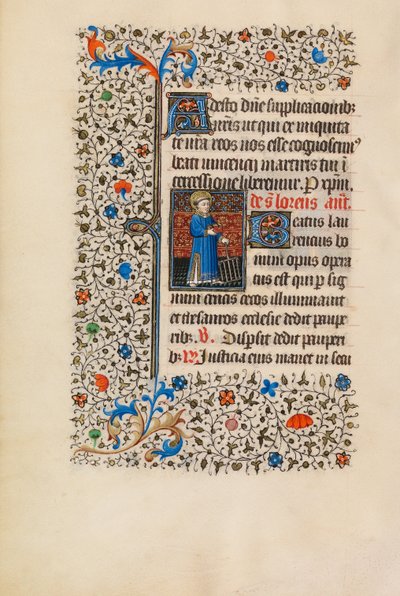 Adesto dñe supplicacionibz
nr̃is ut qui ex iniquita
te nr̃a reos nos esse cognoscimꝰ
beati vincencii martiris tui ĩ
tercessione liberemur. P xp̃m.
de s̃. lorens ant̃.
Beatus lau
rencius bo
num opus opera
tus est qui p sig
num crucis cecos illuminauit
et thesauros ecclesie dedit paupe
ribz. V. Dispersit dedit pauperi
bz R Iusticia eius manet in secu